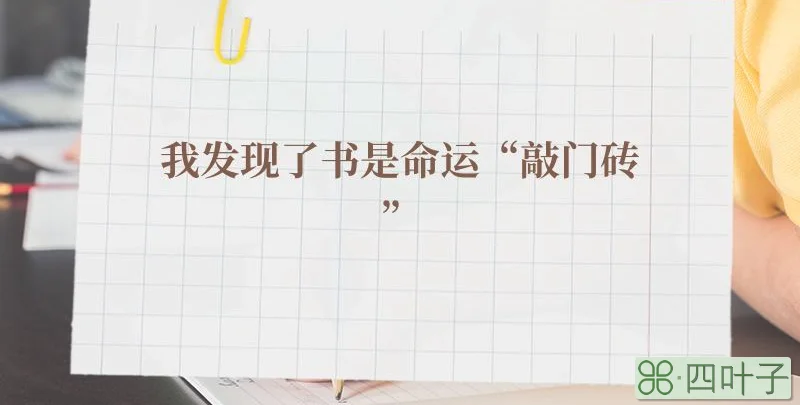 我发现了书是命运“敲门砖
”
⌘·四叶子